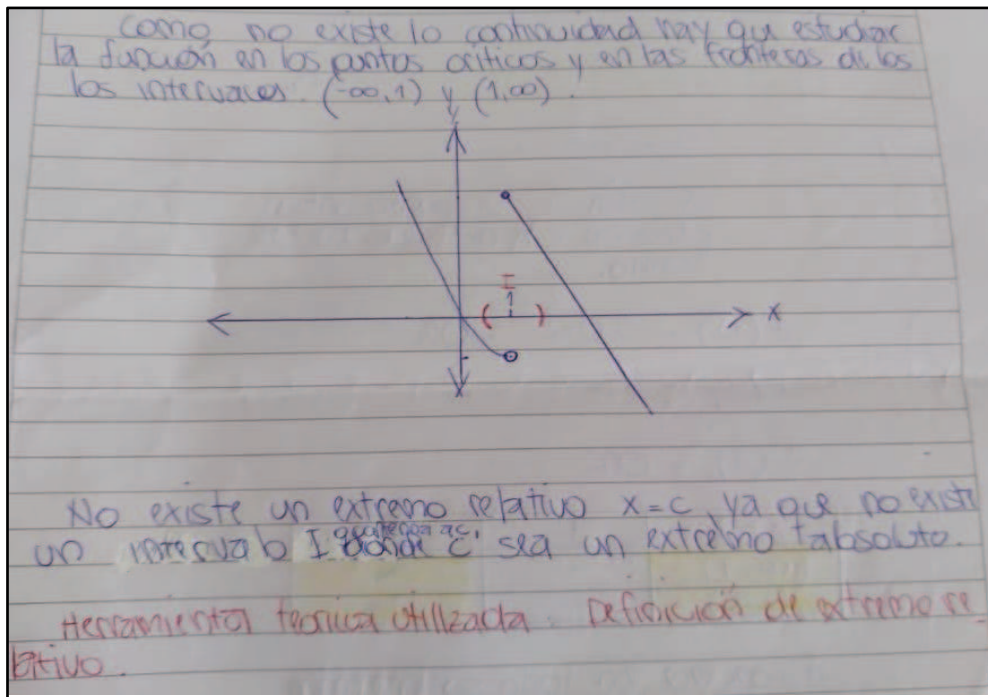 Como no existe lo continuidad hay qu estudiar
la función en los puntos críticos y en las fronteras de los
los intervalos. (-∞, 1) y (1, ∞).
y
I
( 1 )
x
No existe un extremo relativo x = c, ya que no existe
un intervalo I que tenga a c, donde c sea un extremo absoluto.
Herramienta teorica utilizada. Definición de extremo re-
lativo.